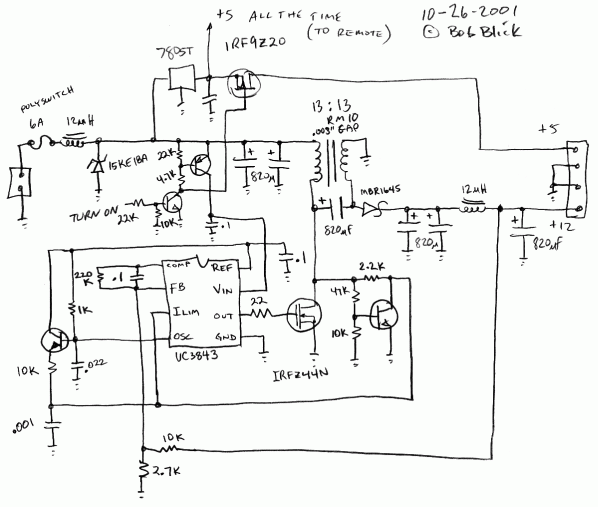 +5 ALL THE TIME
(TO REMOTE)
10-26-2001
© Bob Blick
7805T
IRF9Z20
POLYSWITCH
6A
12µH
13:13
RM10
.003" GAP
+5
15KE18A
22K
4.7K
+
+
820µ
MBR1645
12µH
TURN ON
22K
10K
.1
+
820µF
+
+
820µ
+
820µF
+12
.1
220
K
.1
COMP
REF
FB
VIN
2.2K
1K
ILIM
OUT
22
47K
OSC
GND
10K
.022
UC3843
10K
IRFZ44N
.001
10K
2.7K